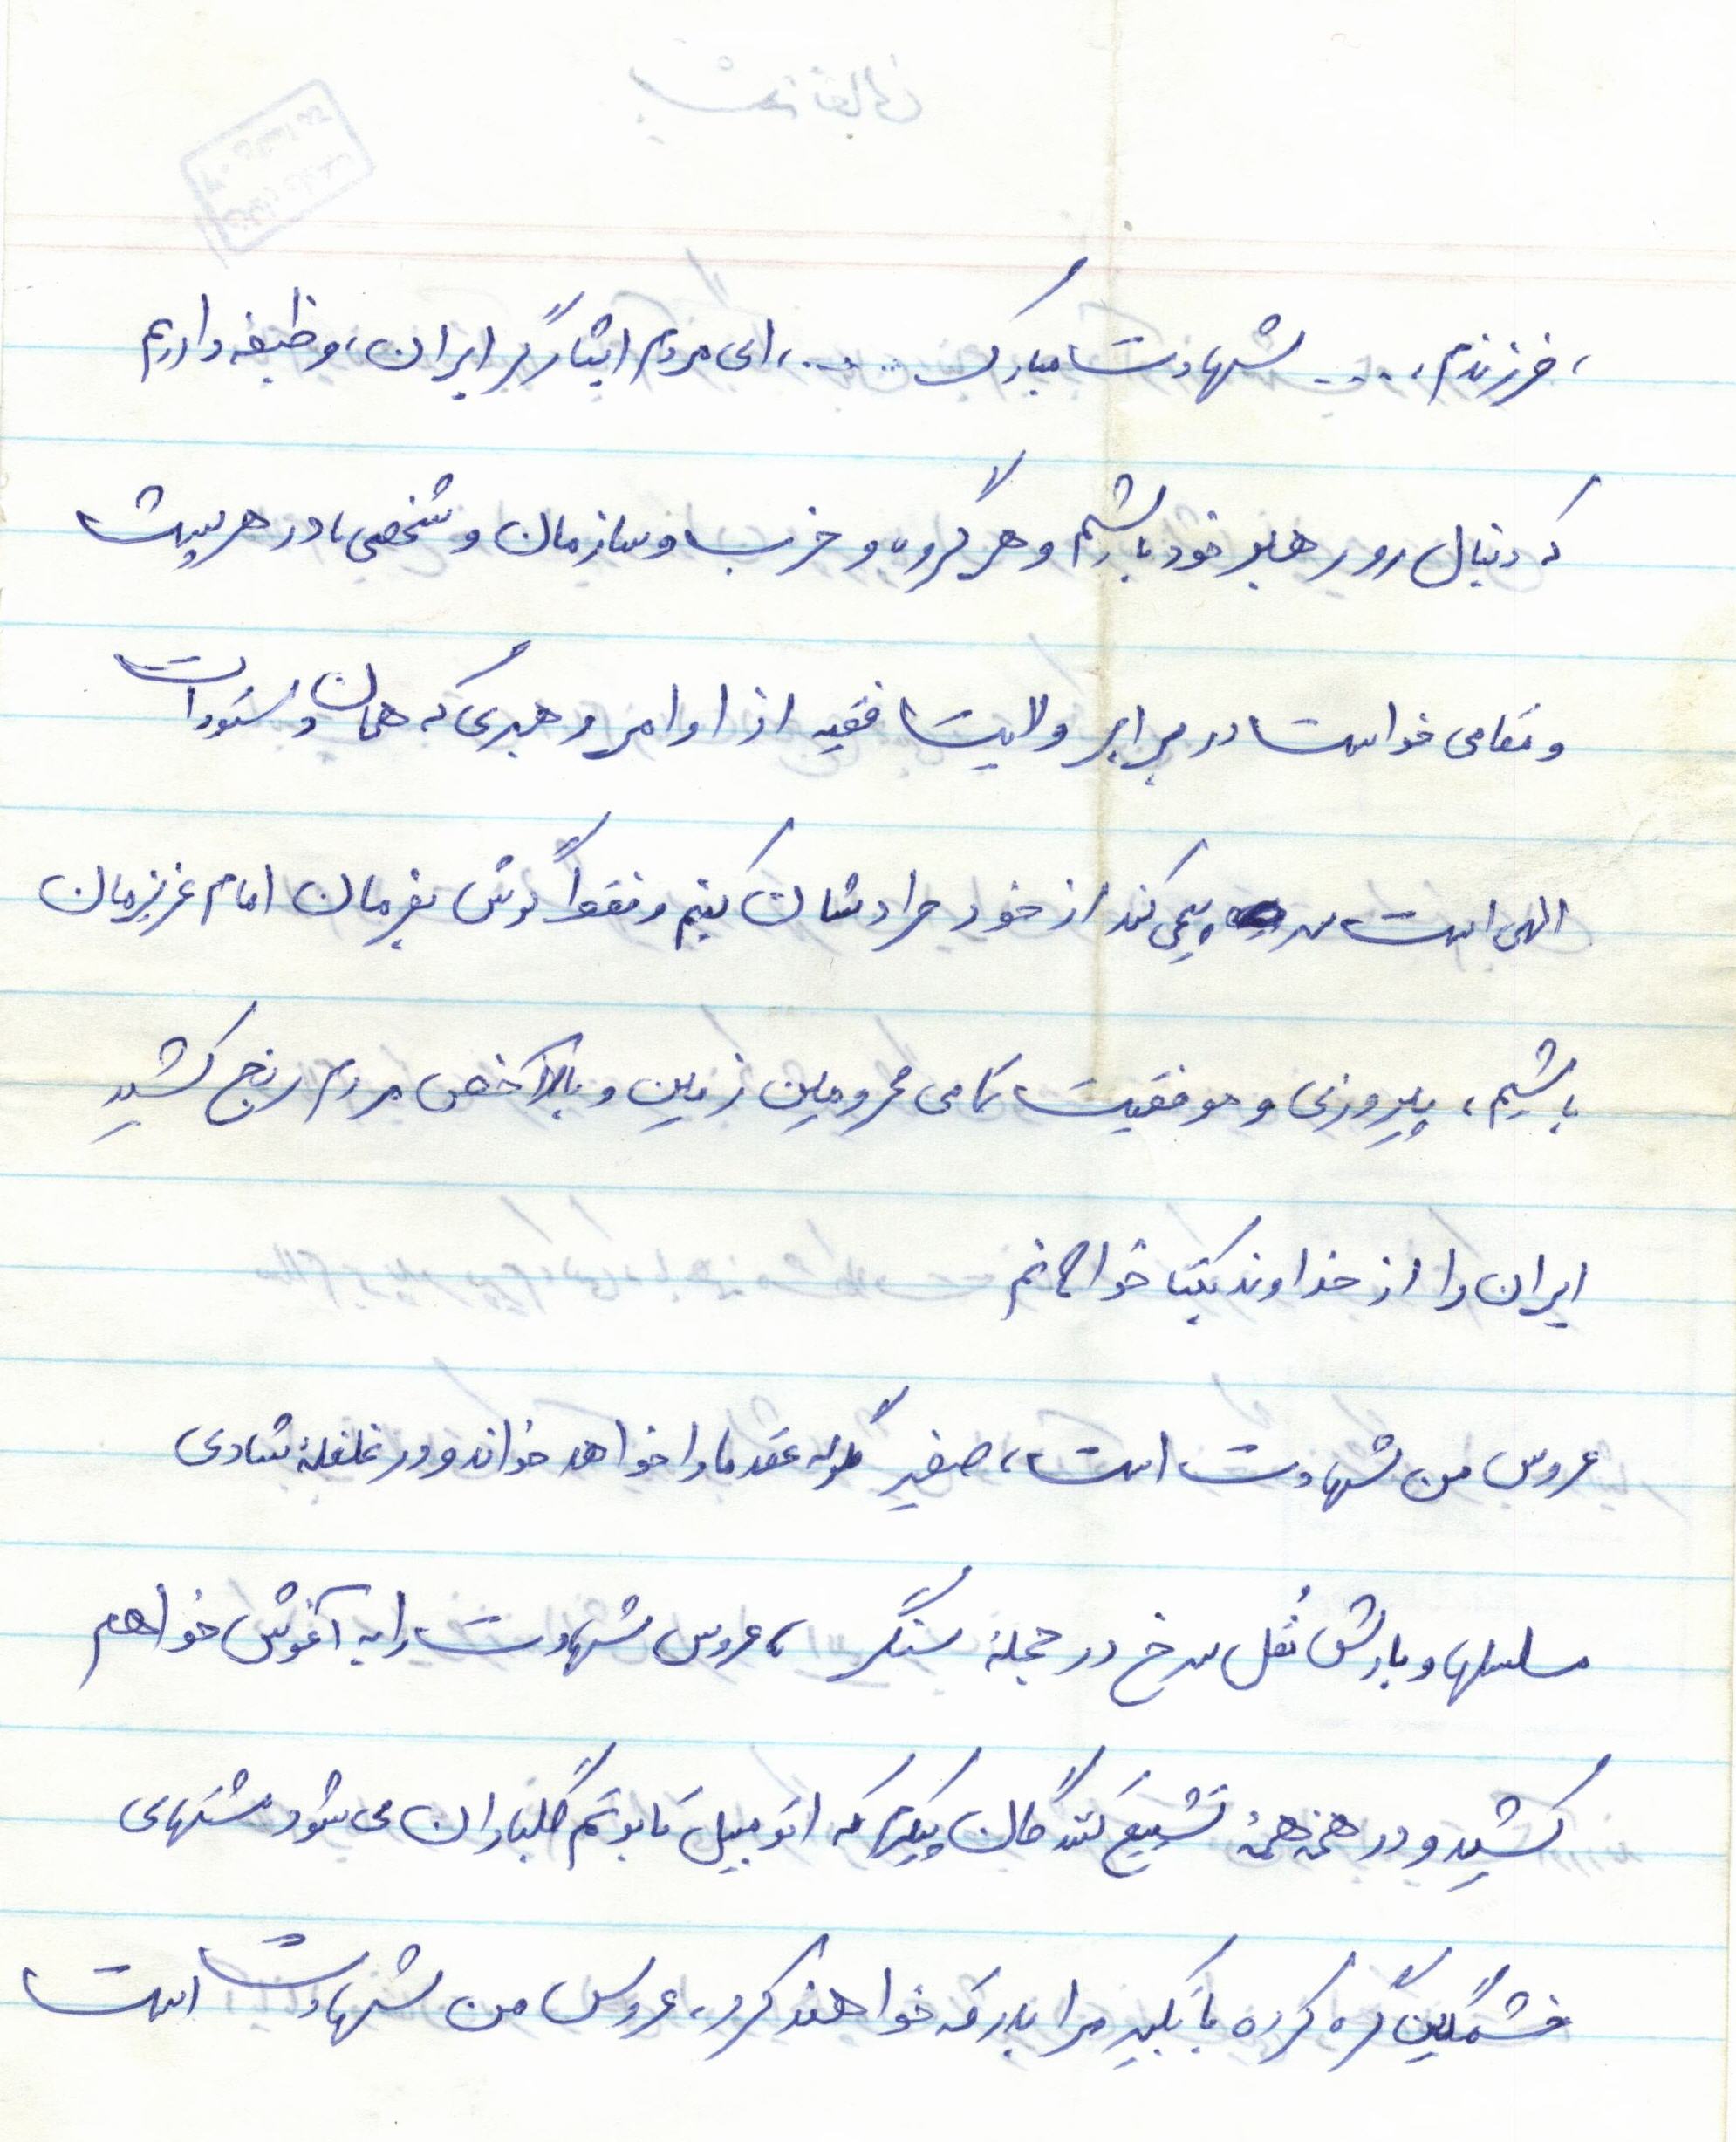 ، فرزندم، .... شهادتت مبارک .....، ای مردم ایثارگر ایران، وظیفه داریم
که دنبال رو رهبر خود باشیم و هر گروه و حزب و سازمان و شخصی با در هر پست
و مقامی خواست در برابر ولایت فقیه از اوامر رهبری که همان دستورات
الهی است سر پیچی کند از خود طردشان کنیم و فقط گوش بفرمان امام عزیزمان
باشیم، پیروزی و موفقیت تمامی محرومین زمین و بالاخص مردم رنج کشید
ایران را از خداوند یکتا خواهانم
عروس من شهادت است، صفیر گلوله عقد ما را خواهد خواند و در غلغلهٔ شادی
مسلسلها و بارش نُقل سرخ در حجلهٔ سنگر، عروس شهادت را به آغوش خواهم
کشید و در همهمهٔ تشییع کنندگان پیکرم که اتومبیل تابوتم گلباران می شود مشتهای
خشمگین گره کرده با تکبیر مرا بدرقه خواهند کرد، عروس من شهادت است